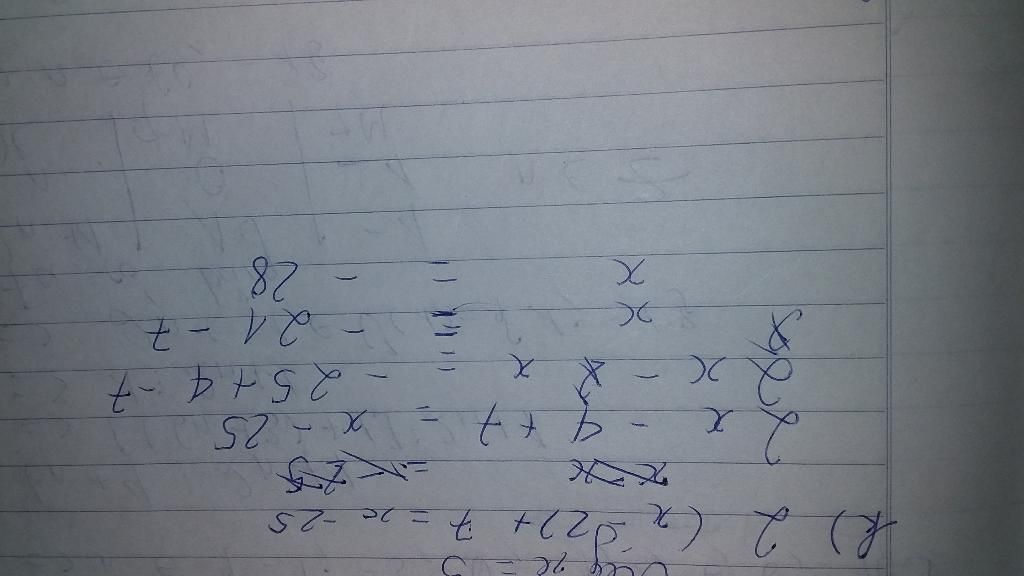 x = 5
k) 2 (x - 2) + 7 = x - 25
2x - 4 + 7 = x - 25
2x - x = - 25 + 4 - 7
x = - 21 - 7
x = - 28